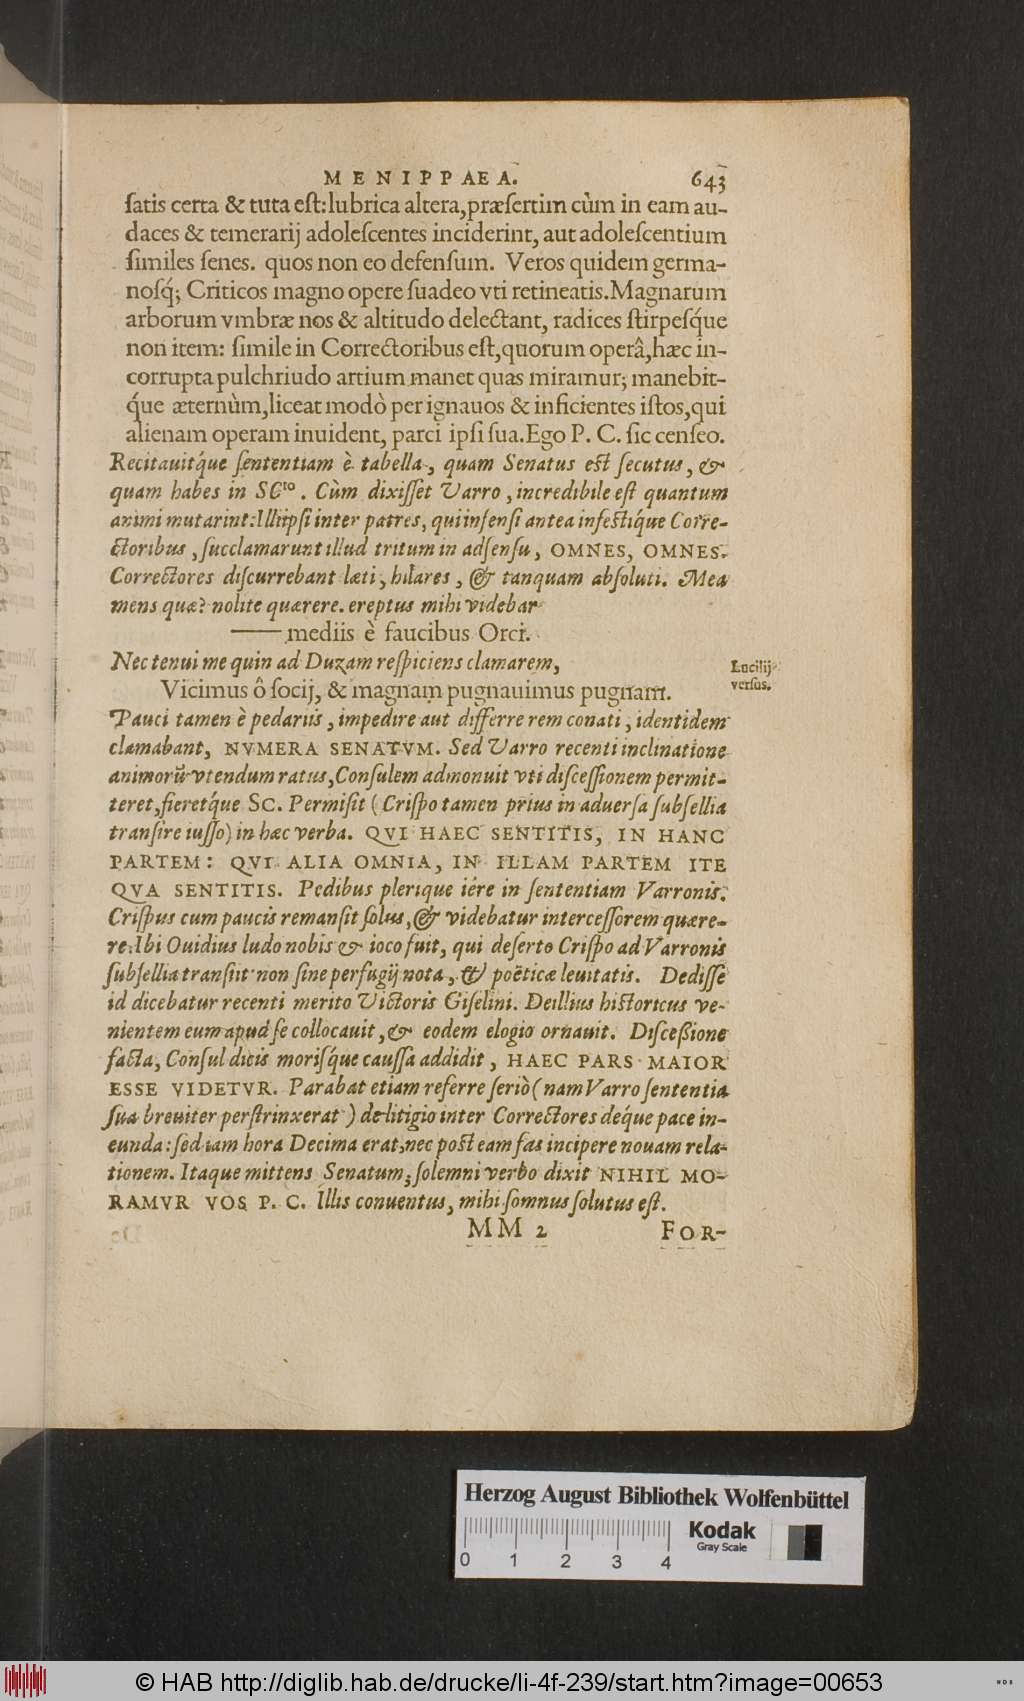 MENIPPAEA. 643
ſatis certa & tuta eſt: lubrica altera, præſertim cùm in eam au-
daces & temerarij adoleſcentes inciderint, aut adoleſcentium
ſimiles ſenes. quos non eo defenſum. Veros quidem germa-
noſq́; Criticos magno opere ſuadeo vti retineatis. Magnarum
arborum vmbræ nos & altitudo delectant, radices ſtirpeſq́ue
non item: ſimile in Correctoribus eſt, quorum operâ, hæc in-
corrupta pulchriudo artium manet quas miramur; manebit-
q́ue æternùm, liceat modò per ignauos & inficientes iſtos, qui
alienam operam inuident, parci ipſi ſua. Ego P. C. ſic cenſeo.
Recitauitq́ue ſententiam è tabella, quam Senatus eſt ſecutus, &
quam habes in SCto. Cùm dixiſſet Varro, incredibile eſt quantum
animi mutarint: Illi ipſi inter patres, qui infenſi antea infeſtiq́ue Corre-
ctoribus, ſucclamarunt illud tritum in adſenſu, OMNES, OMNES.
Correctores diſcurrebant læti, hilares, & tanquam abſoluti. Mea
mens quæ? nolite quærere. ereptus mihi videbar
—— mediis è faucibus Orci.
Nec tenui me quin ad Duzam reſpiciens clamarem,
Lucilij
verſus.
Vicimus ô ſocij, & magnam pugnauimus pugnam.
Pauci tamen è pedariis, impedire aut differre rem conati, identidem
clamabant, NVMERA SENATVM. Sed Varro recenti inclinatione
animorũ vtendum ratus, Conſulem admonuit vti diſceſſionem permit-
teret, fieretq́ue SC. Permiſit (Criſpo tamen prius in aduerſa ſubſellia
tranſire iuſſo) in hæc verba. QVI HAEC SENTITIS, IN HANC
PARTEM: QVI ALIA OMNIA, IN ILLAM PARTEM ITE
QVA SENTITIS. Pedibus plerique iêre in ſententiam Varronis.
Criſpus cum paucis remanſit ſolus, & videbatur interceſſorem quære-
re. Ibi Ouidius ludo nobis & ioco fuit, qui deſerto Criſpo ad Varronis
ſubſellia tranſiit non ſine perfugij nota, & poëticæ leuitatis. Dediſſe
id dicebatur recenti merito Victoris Giſelini. Deillius hiſtoricus ve-
nientem eum apud ſe collocauit, & eodem elogio ornauit. Diſceſsione
facta, Conſul dicis moriſq́ue cauſſa addidit, HAEC PARS MAIOR
ESSE VIDETVR. Parabat etiam referre ſeriò (nam Varro ſententia
ſua breuiter perſtrinxerat) de litigio inter Correctores deq́ue pace in-
eunda: ſed iam hora Decima erat, nec poſt eam fas incipere nouam rela-
tionem. Itaque mittens Senatum, ſolemni verbo dixit NIHIL MO-
RAMVR VOS P. C. Illis conuentus, mihi ſomnus ſolutus eſt.
MM 2 FOR-
Herzog August Bibliothek Wolfenbüttel
Kodak
Gray Scale
0 1 2 3 4
© HAB http://diglib.hab.de/drucke/li-4f-239/start.htm?image=00653